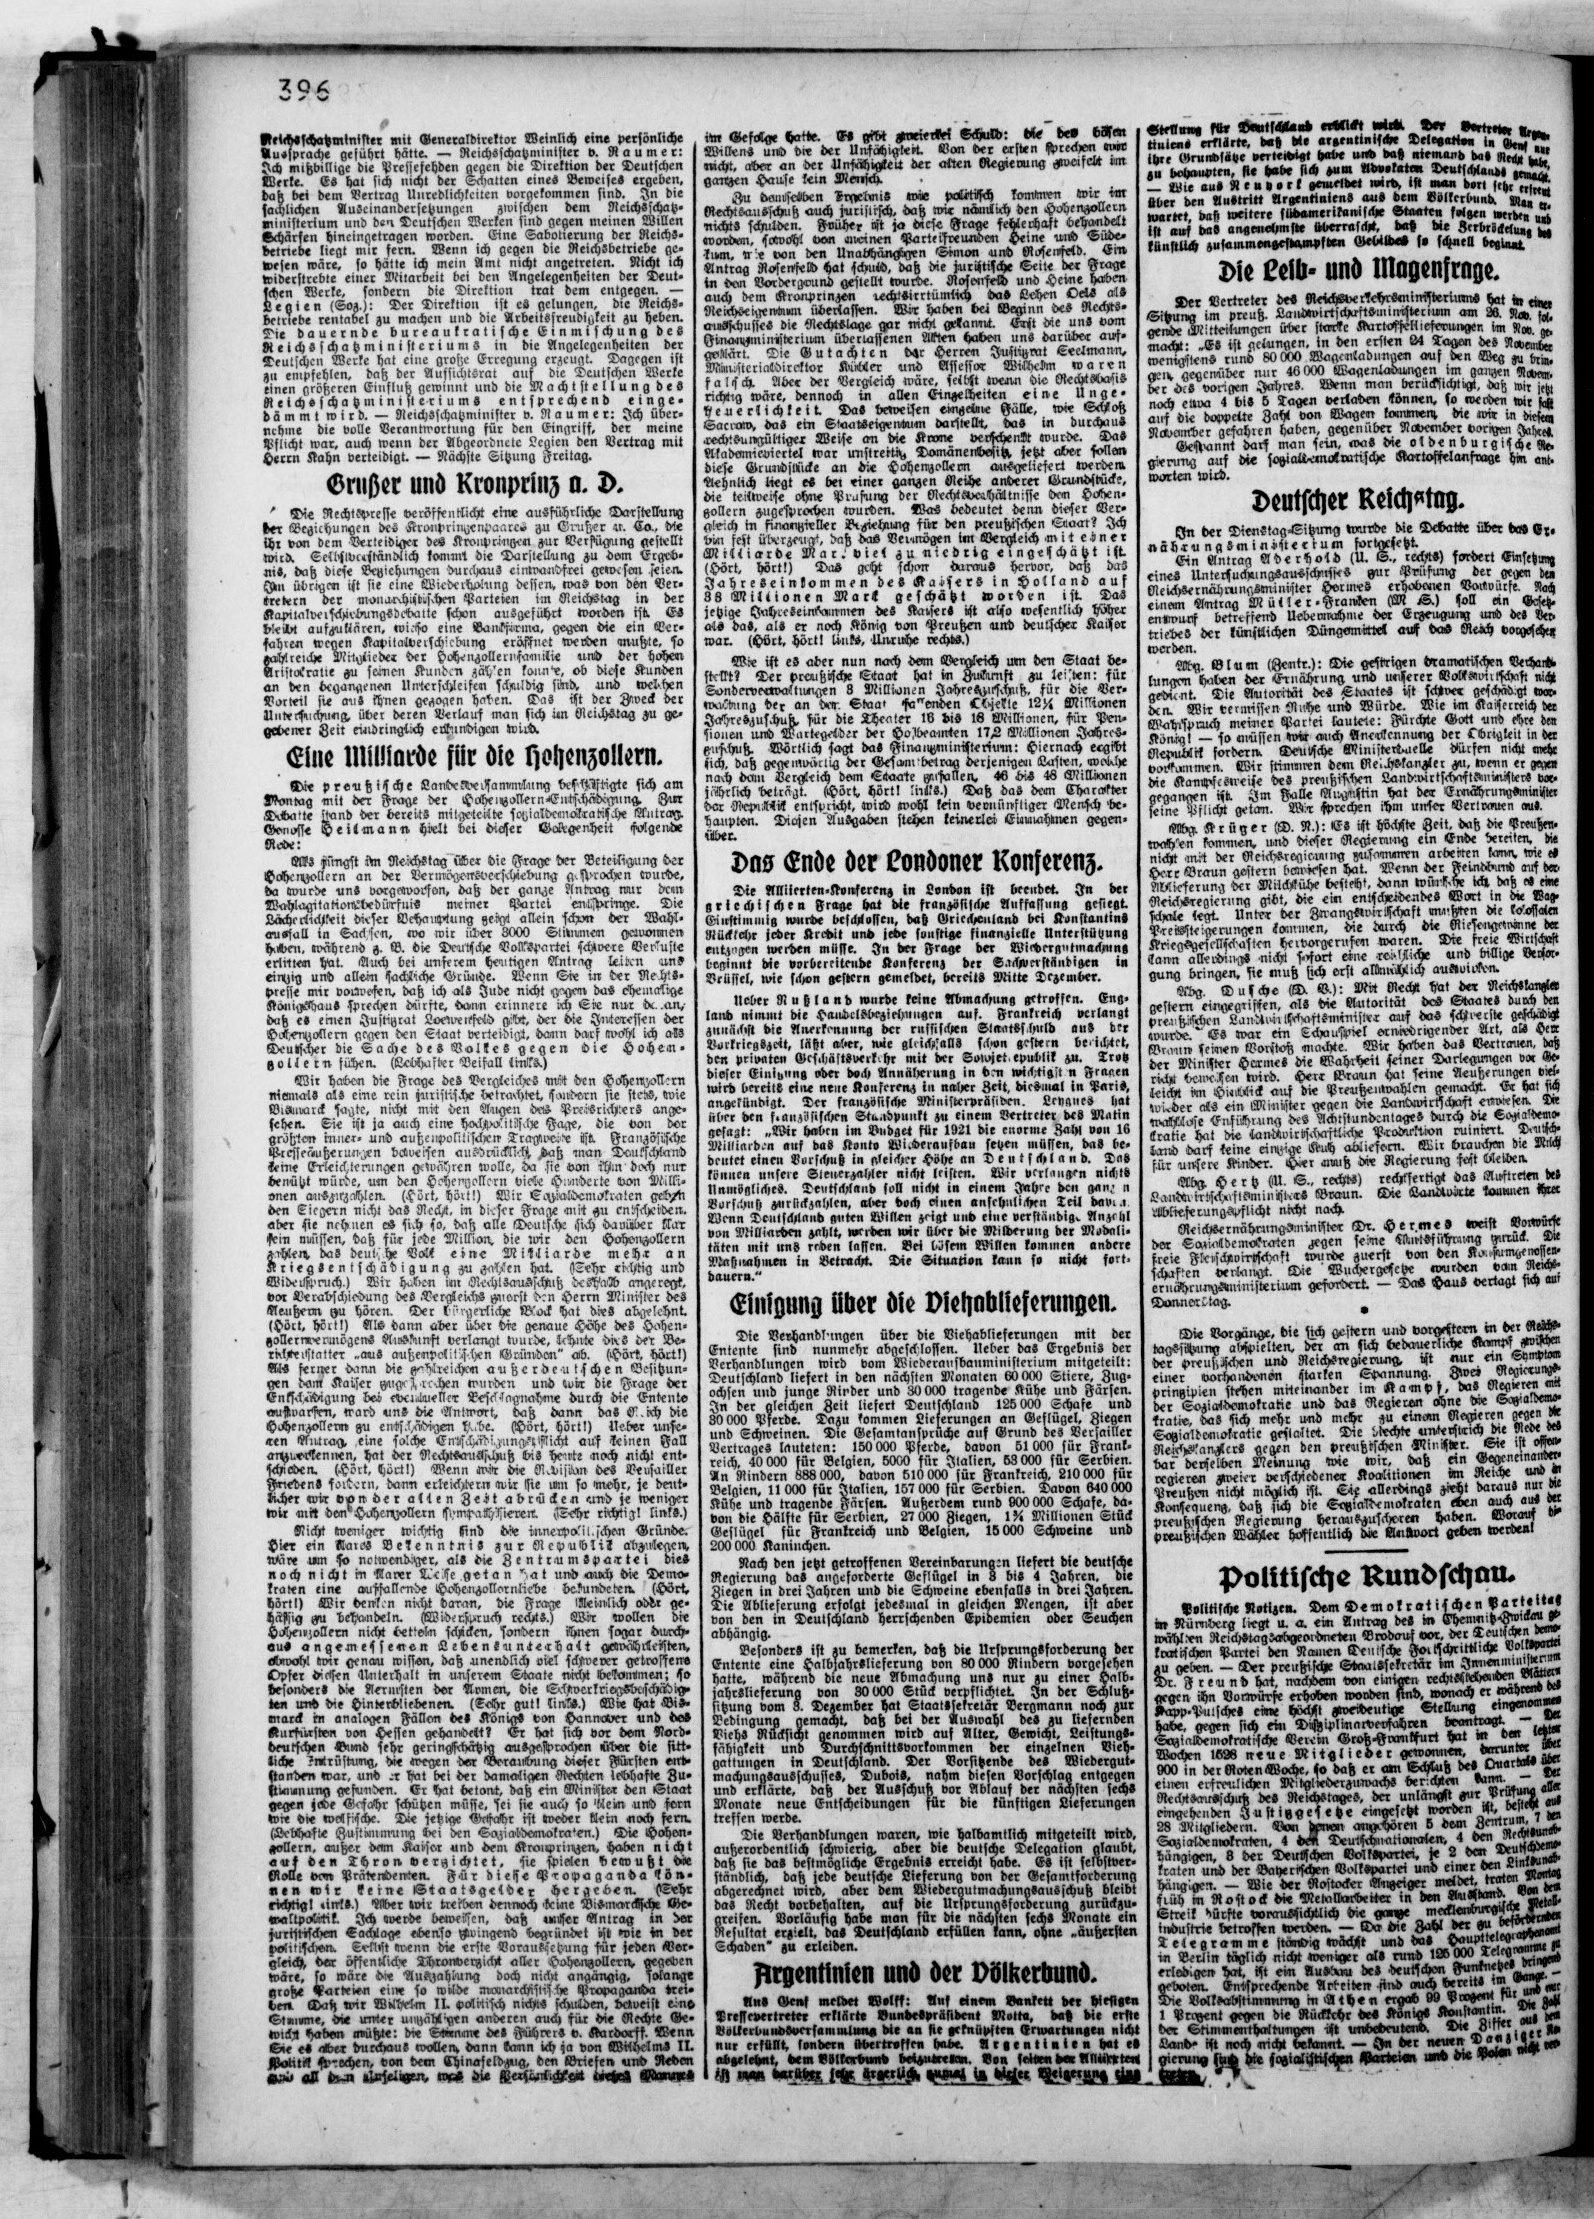 396
Reichsschatzminister mit Generaldirektor Weinlich eine persönliche
Aussprache geführt hätte. — Reichsschatzminister v. Raumer:
Ich mißbillige die Pressefehden gegen die Direktion der Deutschen
Werke. Es hat sich nicht der Schatten eines Beweises ergeben,
daß bei dem Vertrag Unredlichkeiten vorgekommen sind. In die
sachlichen Auseinandersetzungen zwischen dem Reichsschatz-
ministerium und den Deutschen Werken sind gegen meinen Willen
Schärfen hineingetragen worden. Eine Sabotierung der Reichs-
betriebe liegt mir fern. Wenn ich gegen die Reichsbetriebe ge-
wesen wäre, so hätte ich mein Amt nicht angetreten. Nicht ich
widerstrebte einer Mitarbeit bei den Angelegenheiten der Deut-
schen Werke, sondern die Direktion trat dem entgegen. —
Legien (Soz.): Der Direktion ist es gelungen, die Reichs-
betriebe rentabel zu machen und die Arbeitsfreudigkeit zu heben.
Die dauernde bureaukratische Einmischung des
Reichsschatzministeriums in die Angelegenheiten der
Deutschen Werke hat eine große Erregung erzeugt. Dagegen ist
zu empfehlen, daß der Aufsichtsrat auf die Deutschen Werke
einen größeren Einfluß gewinnt und die Machtstellung des
Reichsschatzministeriums entsprechend einge-
dämmt wird. — Reichsschatzminister v. Raumer: Ich über-
nehme die volle Verantwortung für den Eingriff, der meine
Pflicht war, auch wenn der Abgeordnete Legien den Vertrag mit
Herrn Kahn verteidigt. — Nächste Sitzung Freitag.
Grußer und Kronprinz a. D.
Die Rechtspresse veröffentlicht eine ausführliche Darstellung
der Beziehungen des Kronprinzenpaares zu Grußer u. Co., die
ihr von dem Verteidiger des Kronprinzen zur Verfügung gestellt
wird. Selbstverständlich kommt die Darstellung zu dem Ergeb-
nis, daß diese Beziehungen durchaus einwandfrei gewesen seien.
Im übrigen ist sie eine Wiederholung dessen, was von den Ver-
tretern der monarchistischen Parteien im Reichstag in der
Kapitalverschiebungsdebatte schon ausgeführt worden ist. Es
bleibt aufzuklären, wieso eine Bankfirma, gegen die ein Ver-
fahren wegen Kapitalverschiebung eröffnet werden mußte, so
zahlreiche Mitglieder der Hohenzollernfamilie und der hohen
Aristokratie zu seinen Kunden zählen konnte, ob diese Kunden
an den begangenen Unterschleifen schuldig sind, und welchen
Vorteil sie aus ihnen gezogen haben. Das ist der Zweck der
Untersuchung, über deren Verlauf man sich im Reichstag zu ge-
gebener Zeit eindringlich erkundigen wird.
Eine Milliarde für die Hohenzollern.
Die preußische Landesversammlung beschäftigte sich am
Montag mit der Frage der Hohenzollern-Entschädigung. Zur
Debatte stand der bereits mitgeteilte sozialdemokratische Antrag.
Genosse Heilmann hielt bei dieser Gelegenheit folgende
Rede:
Als jüngst im Reichstag über die Frage der Beteiligung der
Hohenzollern an der Vermögensverschiebung gesprochen wurde,
da wurde uns vorgeworfen, daß der ganze Antrag nur dem
Wahlagitationsbedürfnis meiner Partei entspringe. Die
Lächerlichkeit dieser Behauptung zeigt allein schon der Wahl-
ausfall in Sachsen, wo wir über 3000 Stimmen gewonnen
haben, während z. B. die Deutsche Volkspartei schwere Verluste
erlitten hat. Auch bei unserem heutigen Antrag leiten uns
einzig und allein sachliche Gründe. Wenn Sie in der Rechts-
presse mir vorwerfen, daß ich als Jude nicht gegen das ehemalige
Königshaus sprechen dürfte, dann erinnere ich Sie nur daran,
daß es einen Justizrat Loewenfeld gibt, der die Interessen der
Hohenzollern gegen den Staat verteidigt, dann darf wohl ich als
Deutscher die Sache des Volkes gegen die Hohen-
zollern führen. (Lebhafter Beifall links.)
Wir haben die Frage des Vergleiches mit den Hohenzollern
niemals als eine rein juristische betrachtet, sondern sie stets, wie
Bismarck sagte, nicht mit den Augen des Preisrichters ange-
sehen. Sie ist ja auch eine hochpolitische Frage, die von der
größten inner- und außenpolitischen Tragweite ist. Französische
Presseäußerungen beweisen ausdrücklich, daß man Deutschland
keine Erleichterungen gewähren wolle, da sie von ihm doch nur
benützt würde, um den Hohenzollern viele Hunderte von Milli-
onen auszuzahlen. (Hört, hört!) Wir Sozialdemokraten geben
den Siegern nicht das Recht, in dieser Frage mit zu entscheiden.
aber sie nehmen es sich so, daß alle Deutsche sich darüber klar
sein müssen, daß für jede Million, die wir den Hohenzollern
zahlen, das deutsche Volk eine Milliarde mehr an
Kriegsentschädigung zu zahlen hat. (Sehr richtig und
Widerspruch.) Wir haben im Rechtsausschuß deshalb angeregt,
vor Verabschiedung des Vergleichs zuerst den Herrn Minister des
Aeußern zu hören. Der bürgerliche Block hat dies abgelehnt.
(Hört, hört!) Als dann aber über die genaue Höhe des Hohen-
zollernvermögens Auskunft verlangt wurde, lehnte dies der Be-
richterstatter „aus außenpolitischen Gründen“ ab. (Hört, hört!)
Als ferner dann die zahlreichen außerdeutschen Besitzun-
gen dem Kaiser zugesprochen wurden und wir die Frage der
Entschädigung bei eventueller Beschlagnahme durch die Entente
aufwarfen, ward uns die Antwort, daß dann das Reich die
Hohenzollern zu entschädigen habe. (Hört, hört!) Ueber unse-
ren Antrag, eine solche Entschädigungspflicht auf keinen Fall
anzuerkennen, hat der Rechtsausschuß bis heute noch nicht ent-
schieden. (Hört, hört!) Wenn wir die Revision des Versailler
Friedens fordern, dann erleichtern wir sie um so mehr, je deut-
licher wir von der alten Zeit abrücken und je weniger
wir mit den Hohenzollern sympathisieren. (Sehr richtig! links.)
Nicht weniger wichtig sind die innerpolitischen Gründe.
Hier ein klares Bekenntnis zur Republik abzulegen,
wäre um so notwendiger, als die Zentrumspartei dies
noch nicht in klarer Weise getan hat und auch die Demo-
kraten eine auffallende Hohenzollernliebe bekundeten. (Hört,
hört!) Wir denken nicht daran, die Frage kleinlich oder ge-
hässig zu behandeln. (Widerspruch rechts.) Wir wollen die
Hohenzollern nicht betteln schicken, sondern ihnen sogar durch-
aus angemessenen Lebensunterhalt gewährleisten,
obwohl wir genau wissen, daß unendlich viel schwerer getroffene
Opfer diesen Unterhalt in unserem Staate nicht bekommen; so
besonders die Aermsten der Armen, die Schwerkriegsbeschädig-
ten und die Hinterbliebenen. (Sehr gut! links.) Wie hat Bis-
marck in analogen Fällen des Königs von Hannover und des
Kurfürsten von Hessen gehandelt? Er hat sich vor dem Nord-
deutschen Bund sehr geringschätzig ausgesprochen über die sitt-
liche Entrüstung, die wegen der Beraubung dieser Fürsten ent-
standen war, und er hat bei der damaligen Rechten lebhafte Zu-
stimmung gefunden. Er hat betont, daß ein Minister den Staat
gegen jede Gefahr schützen müsse, sei sie auch so klein und fern
wie die welfische. Die jetzige Gefahr ist weder klein noch fern.
(Lebhafte Zustimmung bei den Sozialdemokraten.) Die Hohen-
zollern, außer dem Kaiser und dem Kronprinzen, haben nicht
auf den Thron verzichtet, sie spielen bewußt die
Rolle von Prätendenten. Für diese Propaganda kön-
nen wir keine Staatsgelder hergeben. (Sehr
richtig! links.) Aber wir treiben dennoch keine Bismarcksche Ge-
waltpolitik. Ich werde beweisen, daß unser Antrag in der
juristischen Sachlage ebenso zwingend begründet ist wie in der
politischen. Selbst wenn die erste Voraussetzung für jeden Ver-
gleich, der öffentliche Thronverzicht aller Hohenzollern, gegeben
wäre, so wäre die Auszahlung doch nicht angängig, solange
große Parteien eine so wilde monarchistische Propaganda trei-
ben. Daß wir Wilhelm II. politisch nichts schulden, beweist eine
Stimme, die unter unzähligen anderen auch für die Rechte Ge-
wicht haben müßte: die Stimme des Führers v. Kardorff. Wenn
Sie es aber durchaus wollen, dann kann ich ja von Wilhelms II.
Politik sprechen, von dem Chinafeldzug, den Briefen und Reden
und all dem Unseligen, was die Persönlichkeit dieses Mannes
im Gefolge hatte. Es gibt zweierlei Schuld: die des bösen
Willens und die der Unfähigkeit. Von der ersten sprechen wir
nicht, aber an der Unfähigkeit der alten Regierung zweifelt im
ganzen Hause kein Mensch.
Zu demselben Ergebnis wie politisch kommen wir im
Rechtsausschuß auch juristisch, daß wir nämlich den Hohenzollern
nichts schulden. Früher ist ja diese Frage fehlerhaft behandelt
worden, sowohl von meinen Parteifreunden Heine und Süde-
kum, wie von den Unabhängigen Simon und Rosenfeld. Ein
Antrag Rosenfeld hat schuld, daß die juristische Seite der Frage
in den Vordergrund gestellt wurde. Rosenfeld und Heine haben
auch dem Kronprinzen rechtsirrtümlich das Lehen Oels als
Reichseigentum überlassen. Wir haben bei Beginn des Rechts-
ausschusses die Rechtslage gar nicht gekannt. Erst die uns vom
Finanzministerium überlassenen Akten haben uns darüber auf-
geklärt. Die Gutachten der Herren Justizrat Seelmann,
Ministerialdirektor Kübler und Assessor Wilhelm waren
falsch. Aber der Vergleich wäre, selbst wenn die Rechtsbasis
richtig wäre, dennoch in allen Einzelheiten eine Unge-
heuerlichkeit. Das beweisen einzelne Fälle, wie Schloß
Sacrow, das ein Staatseigentum darstellt, das in durchaus
rechtsungültiger Weise an die Krone verschenkt wurde. Das
Akademieviertel war unstreitig Domänenbesitz, jetzt aber sollen
diese Grundstücke an die Hohenzollern ausgeliefert werden.
Aehnlich liegt es bei einer ganzen Reihe anderer Grundstücke,
die teilweise ohne Prüfung der Rechtsverhältnisse den Hohen-
zollern zugesprochen wurden. Was bedeutet denn dieser Ver-
gleich in finanzieller Beziehung für den preußischen Staat? Ich
bin fest überzeugt, daß das Vermögen im Vergleich mit einer
Milliarde Mark viel zu niedrig eingeschätzt ist.
(Hört, hört!) Das geht schon daraus hervor, daß das
Jahreseinkommen des Kaisers in Holland auf
38 Millionen Mark geschätzt worden ist. Das
jetzige Jahreseinkommen des Kaisers ist also wesentlich höher
als das, als er noch König von Preußen und deutscher Kaiser
war. (Hört, hört! links, Unruhe rechts.)
Wie ist es aber nun nach dem Vergleich um den Staat be-
stellt? Der preußische Staat hat in Zukunft zu leisten: für
Sonderverwaltungen 3 Millionen Jahreszuschuß, für die Ver-
waltung der an den Staat fallenden Objekte 12¼ Millionen
Jahreszuschuß, für die Theater 16 bis 18 Millionen, für Pen-
sionen und Wartegelder der Hofbeamten 17,2 Millionen Jahres-
zuschuß. Wörtlich sagt das Finanzministerium: Hiernach ergibt
sich, daß gegenwärtig der Gesamtbetrag derjenigen Lasten, welche
nach dem Vergleich dem Staate zufallen, 46 bis 48 Millionen
jährlich beträgt. (Hört, hört! links.) Daß das dem Charakter
der Republik entspricht, wird wohl kein vernünftiger Mensch be-
haupten. Diesen Ausgaben stehen keinerlei Einnahmen gegen-
über.
Das Ende der Londoner Konferenz.
Die Alliierten-Konferenz in London ist beendet. In der
griechischen Frage hat die französische Auffassung gesiegt.
Einstimmig wurde beschlossen, daß Griechenland bei Konstantins
Rückkehr jeder Kredit und jede sonstige finanzielle Unterstützung
entzogen werden müsse. In der Frage der Wiedergutmachung
beginnt die vorbereitende Konferenz der Sachverständigen in
Brüssel, wie schon gestern gemeldet, bereits Mitte Dezember.
Ueber Rußland wurde keine Abmachung getroffen. Eng-
land nimmt die Handelsbeziehungen auf. Frankreich verlangt
zunächst die Anerkennung der russischen Staatsschuld aus der
Vorkriegszeit, läßt aber, wie gleichfalls schon gestern berichtet,
den privaten Geschäftsverkehr mit der Sowjetrepublik zu. Trotz
dieser Einigung oder doch Annäherung in den wichtigsten Fragen
wird bereits eine neue Konferenz in naher Zeit, diesmal in Paris,
angekündigt. Der französische Ministerpräsident Leygues hat
über den französischen Standpunkt zu einem Vertreter des Matin
gesagt: „Wir haben im Budget für 1921 die enorme Zahl von 16
Milliarden auf das Konto Wiederaufbau setzen müssen, das be-
deutet einen Vorschuß in gleicher Höhe an Deutschland. Das
können unsere Steuerzahler nicht leisten. Wir verlangen nichts
Unmögliches. Deutschland soll nicht in einem Jahre den ganzen
Vorschuß zurückzahlen, aber doch einen ansehnlichen Teil davon.
Wenn Deutschland guten Willen zeigt und eine verständige Anzahl
von Milliarden zahlt, werden wir über die Milderung der Modali-
täten mit uns reden lassen. Bei bösem Willen kommen andere
Maßnahmen in Betracht. Die Situation kann so nicht fort-
dauern.“
Einigung über die Viehablieferungen.
Die Verhandlungen über die Viehablieferungen mit der
Entente sind nunmehr abgeschlossen. Ueber das Ergebnis der
Verhandlungen wird vom Wiederaufbauministerium mitgeteilt:
Deutschland liefert in den nächsten Monaten 60 000 Stiere, Zug-
ochsen und junge Rinder und 30 000 tragende Kühe und Färsen.
In der gleichen Zeit liefert Deutschland 125 000 Schafe und
30 000 Pferde. Dazu kommen Lieferungen an Geflügel, Ziegen
und Schweinen. Die Gesamtansprüche auf Grund des Versailler
Vertrages lauteten: 150 000 Pferde, davon 51 000 für Frank-
reich, 40 000 für Belgien, 5000 für Italien, 53 000 für Serbien.
An Rindern 888 000, davon 510 000 für Frankreich, 210 000 für
Belgien, 11 000 für Italien, 157 000 für Serbien. Davon 640 000
Kühe und tragende Färsen. Außerdem rund 900 000 Schafe, da-
von die Hälfte für Serbien, 27 000 Ziegen, 1¾ Millionen Stück
Geflügel für Frankreich und Belgien, 15 000 Schweine und
200 000 Kaninchen.
Nach den jetzt getroffenen Vereinbarungen liefert die deutsche
Regierung das angeforderte Geflügel in 3 bis 4 Jahren, die
Ziegen in drei Jahren und die Schweine ebenfalls in drei Jahren.
Die Ablieferung erfolgt jedesmal in gleichen Mengen, ist aber
von den in Deutschland herrschenden Epidemien oder Seuchen
abhängig.
Besonders ist zu bemerken, daß die Ursprungsforderung der
Entente eine Halbjahrslieferung von 80 000 Rindern vorgesehen
hatte, während die neue Abmachung uns nur zu einer Halb-
jahrslieferung von 30 000 Stück verpflichtet. In der Schluß-
sitzung vom 3. Dezember hat Staatssekretär Bergmann noch zur
Bedingung gemacht, daß bei der Auswahl des zu liefernden
Viehs Rücksicht genommen wird auf Alter, Gewicht, Leistungs-
fähigkeit und Durchschnittsvorkommen der einzelnen Vieh-
gattungen in Deutschland. Der Vorsitzende des Wiedergut-
machungsausschusses, Dubois, nahm diesen Vorschlag entgegen
und erklärte, daß der Ausschuß vor Ablauf der nächsten sechs
Monate neue Entscheidungen für die künftigen Lieferungen
treffen werde.
Die Verhandlungen waren, wie halbamtlich mitgeteilt wird,
außerordentlich schwierig, aber die deutsche Delegation glaubt,
daß sie das bestmögliche Ergebnis erreicht habe. Es ist selbstver-
ständlich, daß jede deutsche Lieferung von der Gesamtforderung
abgerechnet wird, aber dem Wiedergutmachungsausschuß bleibt
das Recht vorbehalten, auf die Ursprungsforderung zurückzu-
greifen. Vorläufig habe man für die nächsten sechs Monate ein
Resultat erzielt, das Deutschland erfüllen kann, ohne „äußersten
Schaden“ zu erleiden.
Argentinien und der Völkerbund.
Aus Genf meldet Wolff: Auf einem Bankett der hiesigen
Pressevertreter erklärte Bundespräsident Motta, daß die erste
Völkerbundsversammlung die an sie geknüpften Erwartungen nicht
nur erfüllt, sondern übertroffen habe. Argentinien hat es
abgelehnt, dem Völkerbund beizutreten. Von seiten der Alliierten
ist man darüber sehr ärgerlich, zumal in dieser Weigerung eine
Stellung für Deutschland erblickt wird. Der Vertreter Argen-
tiniens erklärte, daß die argentinische Delegation in Genf nur
ihre Grundsätze verteidigt habe und daß niemand das Recht habe,
zu behaupten, sie habe sich zum Advokaten Deutschlands gemacht.
— Wie aus Neuyork gemeldet wird, ist man dort sehr erfreut
über den Austritt Argentiniens aus dem Völkerbund. Man er-
wartet, daß weitere südamerikanische Staaten folgen werden und
ist auf das angenehmste überrascht, daß die Zerbröckelung des
künstlich zusammengestampften Gebildes so schnell beginnt.
Die Leib- und Magenfrage.
Der Vertreter des Reichsverkehrsministeriums hat in einer
Sitzung im preuß. Landwirtschaftsministerium am 26. Nov. fol-
gende Mitteilungen über starke Kartoffellieferungen im Nov. ge-
macht: „Es ist gelungen, in den ersten 24 Tagen des November
wenigstens rund 80 000 Wagenladungen auf den Weg zu brin-
gen, gegenüber nur 46 000 Wagenladungen im ganzen Novem-
ber des vorigen Jahres. Wenn man berücksichtigt, daß wir jetzt
noch etwa 4 bis 5 Tagen verladen können, so werden wir fast
auf die doppelte Zahl von Wagen kommen, die wir in diesem
November gefahren haben, gegenüber November vorigen Jahres.
Gespannt darf man sein, was die oldenburgische Re-
gierung auf die sozialdemokratische Kartoffelanfrage hin ant-
worten wird.
Deutscher Reichstag.
In der Dienstag-Sitzung wurde die Debatte über das Er-
nährungsministerium fortgesetzt.
Ein Antrag Aderhold (U. S., rechts) fordert Einsetzung
eines Untersuchungsausschusses zur Prüfung der gegen den
Reichsernährungsminister Hermes erhobenen Vorwürfe. Nach
einem Antrag Müller-Franken (M. S.) soll ein Gesetz-
entwurf betreffend Uebernahme der Erzeugung und des Ver-
triebes der künstlichen Düngemittel auf das Reich vorgesehen
werden.
Abg. Blum (Zentr.): Die gestrigen dramatischen Verhand-
lungen haben der Ernährung und unserer Volkswirtschaft nicht
gedient. Die Autorität des Staates ist schwer geschädigt wor-
den. Wir vermissen Ruhe und Würde. Wie im Kaiserreich der
Wahlspruch meiner Partei lautete: Fürchte Gott und ehre den
König! — so müssen wir auch Anerkennung der Obrigkeit in der
Republik fordern. Deutsche Ministerduelle dürfen nicht mehr
vorkommen. Wir stimmen dem Reichskanzler zu, wenn er gegen
die Kampfesweise des preußischen Landwirtschaftsministers vor-
gegangen ist. Im Falle Augustin hat der Ernährungsminister
seine Pflicht getan. Wir sprechen ihm unser Vertrauen aus.
Abg. Krüger (D. N.): Es ist höchste Zeit, daß die Preußen-
wahlen kommen, und dieser Regierung ein Ende bereiten, die
nicht mit der Reichsregierung zusammen arbeiten kann, wie es
Herr Braun gestern bewiesen hat. Wenn der Feindbund auf der
Ablieferung der Milchkühe besteht, dann wünsche ich, daß es eine
Reichsregierung gibt, die ein entscheidendes Wort in die Wag-
schale legt. Unter der Zwangswirtschaft mußten die kolossalen
Preissteigerungen kommen, die durch die Riesengewinne der
Kriegsgesellschaften hervorgerufen waren. Die freie Wirtschaft
kann allerdings nicht sofort eine reichliche und billige Versor-
gung bringen, sie muß sich erst allmählich auswirken.
Abg. Dusche (D. V.): Mit Recht hat der Reichskanzler
gestern eingegriffen, als die Autorität des Staates durch den
preußischen Landwirtschaftsminister auf das schwerste geschädigt
wurde. Es war ein Schauspiel erniedrigender Art, als Herr
Braun seinen Vorstoß machte. Wir haben das Vertrauen, daß
der Minister Hermes die Wahrheit seiner Darlegungen vor Ge-
richt beweisen wird. Herr Braun hat seine Aeußerungen viel-
leicht im Hinblick auf die Preußenwahlen gemacht. Er hat sich
wieder als ein Minister gegen die Landwirtschaft erwiesen. Die
wahllose Einführung des Achtstundentages durch die Sozialdemo-
kratie hat die landwirtschaftliche Produktion ruiniert. Deutsch-
land darf keine einzige Kuh abliefern. Wir brauchen die Milch
für unsere Kinder. Hier muß die Regierung fest bleiben.
Abg. Hertz (U. S., rechts) rechtfertigt das Auftreten des
Landwirtschaftsministers Braun. Die Landwirte kommen ihrer
Ablieferungspflicht nicht nach.
Reichsernährungsminister Dr. Hermes weist Vorwürfe
der Sozialdemokraten gegen seine Amtsführung zurück. Die
freie Fleischwirtschaft wurde zuerst von den Konsumgenossen-
schaften verlangt. Die Wuchergesetze wurden vom Reichs-
ernährungsministerium gefordert. — Das Haus vertagt sich auf
Donnerstag.
Die Vorgänge, die sich gestern und vorgestern in der Reichs-
tagssitzung abspielten, der an sich bedauerliche Kampf zwischen
der preußischen und Reichsregierung, ist nur ein Symptom
einer vorhandenen starken Spannung. Zwei Regierungs-
prinzipien stehen miteinander im Kampf, das Regieren mit
der Sozialdemokratie und das Regieren ohne die Sozialdemo-
kratie, das sich mehr und mehr zu einem Regieren gegen die
Sozialdemokratie gestaltet. Die Rechte unterstrich die Rede des
Reichskanzlers gegen den preußischen Minister. Sie ist offen-
bar derselben Meinung wie wir, daß ein Gegeneinander-
regieren zweier verschiedener Koalitionen im Reiche und in
Preußen nicht möglich ist. Sie allerdings zieht daraus nur die
Konsequenz, daß sich die Sozialdemokraten eben auch aus der
preußischen Regierung herauszuscheren haben. Worauf die
preußischen Wähler hoffentlich die Antwort geben werden!
Politische Rundschau.
Politische Notizen. Dem Demokratischen Parteitag
in Nürnberg liegt u. a. ein Antrag des in Chemnitz-Zwickau ge-
wählten Reichstagsabgeordneten Brodauf vor, der Deutschen demo-
kratischen Partei den Namen Deutsche Fortschrittliche Volkspartei
zu geben. — Der preußische Staatssekretär im Innenministerium
Dr. Freund hat, nachdem von einigen rechtsstehenden Blättern
gegen ihn Vorwürfe erhoben worden sind, wonach er während des
Kapp-Putsches eine höchst zweideutige Stellung eingenommen
habe, gegen sich ein Disziplinarverfahren beantragt. — Der
Sozialdemokratische Verein Groß-Frankfurt hat in den letzten
Wochen 1528 neue Mitglieder gewonnen, darunter über
900 in der Roten Woche, so daß er am Schluß des Quartals über
einen erfreulichen Mitgliederzuwachs berichten kann. — Der
Rechtsausschuß des Reichstages, der unlängst zur Prüfung aller
eingehenden Justizgesetze eingesetzt worden ist, besteht aus
28 Mitgliedern. Von denen angehören 5 dem Zentrum, 7 den
Sozialdemokraten, 4 den Deutschnationalen, 4 den Rechtsunab-
hängigen, 3 der Deutschen Volkspartei, je 2 den Deutschdemo-
kraten und der Bayerischen Volkspartei und einer den Linksunab-
hängigen. — Wie der Rostocker Anzeiger meldet, traten Montag
früh in Rostock die Metallarbeiter in den Ausstand. Von dem
Streik dürfte voraussichtlich die ganze mecklenburgische Metall-
industrie betroffen werden. — Da die Zahl der zu befördernden
Telegramme ständig wächst und das Haupttelegraphenamt
in Berlin täglich nicht weniger als rund 125 000 Telegramme zu
erledigen hat, ist ein Ausbau des deutschen Funknetzes dringend
geboten. Entsprechende Arbeiten sind auch bereits im Gange. —
Die Volksabstimmung in Athen ergab 99 Prozent für und nur
1 Prozent gegen die Rückkehr des Königs Konstantin. Die Zahl
der Stimmenthaltungen ist unbedeutend. Die Ziffer aus dem
Lande ist noch nicht bekannt. — In der neuen Danziger Re-
gierung sind die sozialistischen Parteien und die Polen nicht ver-
treten.